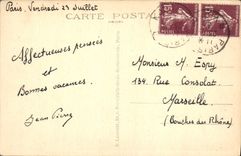 Paris, Vendredi 23 Juillet
CARTE POSTALE
Affectueuses pensées
et
Bonnes vacances.
Jean Pierre
Monsieur M. Espy
134, Rue Consolat
Marseille
(Bouches du Rhône)
PARIS